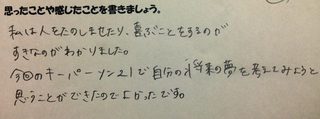 思ったことや感じたことを書きましょう。
私は人をたのしませたり、喜ぶことをするのが
すきなのがわかりました。
今回のキーパーソン21で自分の将来の夢を考えてみようと
思うことができたのでよかったです。